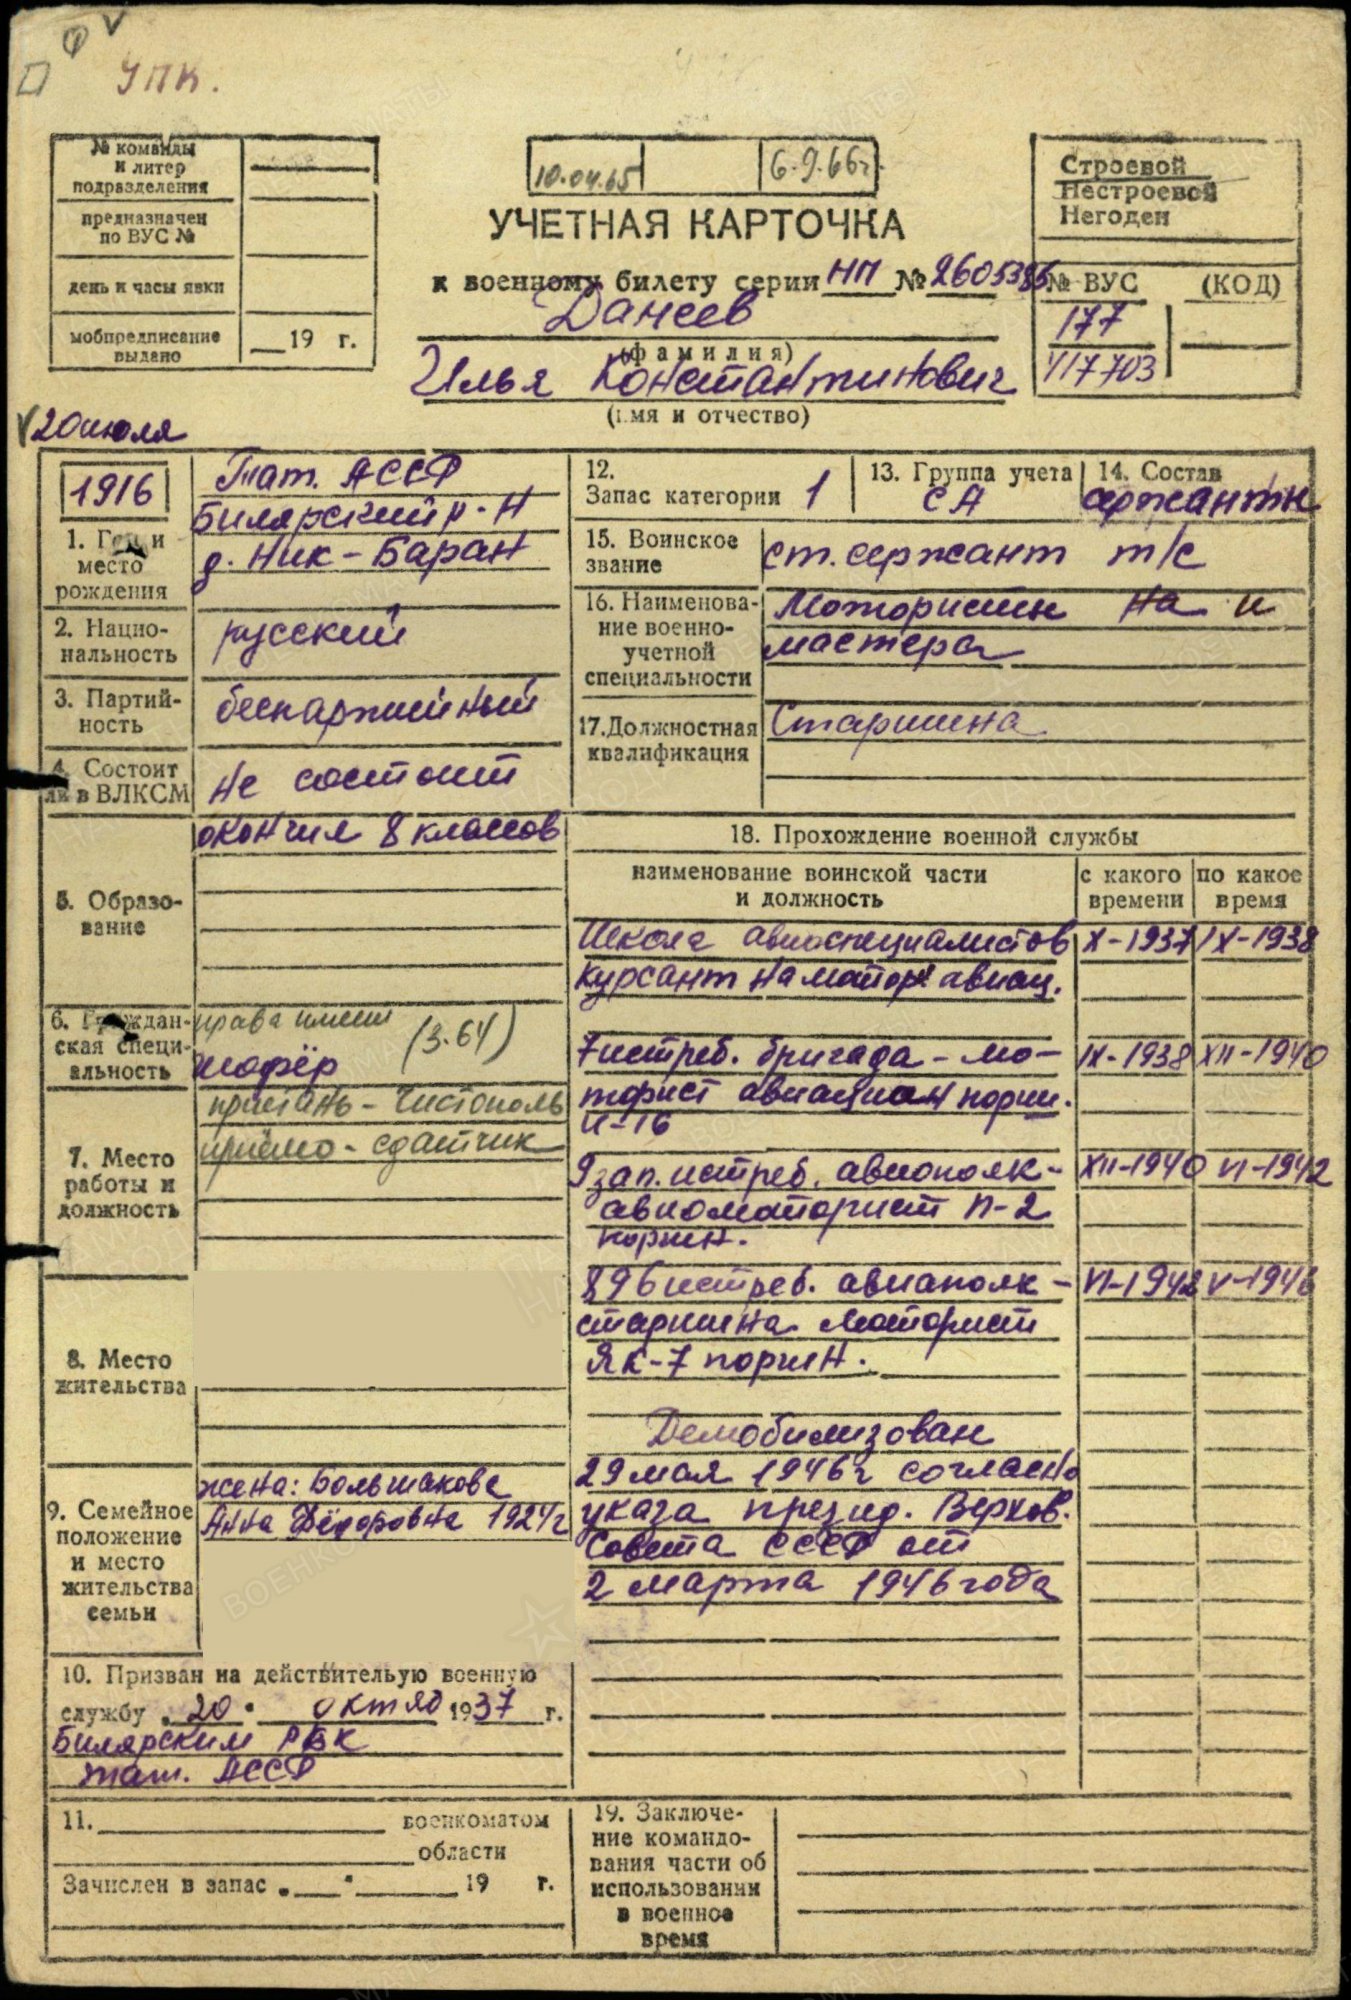 УПК.
№ команды
и литер
подразделения
предназначен
по ВУС №
день и часы явки
мобпредписание
выдано
19 г.
10.04.65
6.9.66г.
Строевой
Нестроевой
Негоден
УЧЕТНАЯ КАРТОЧКА
к военному билету серии НП № 2605385
Данеев
(фамилия)
Илья Константинович
(имя и отчество)
№ ВУС (КОД)
177
417703
20 июля
1916
1. Год и
место
рождения
Тат. АССР
Билярский р-н
д. Ник-Баран
2. Нацио-
нальность
русский
3. Партий-
ность
беспартийный
4. Состоит
ли в ВЛКСМ
не состоит
5. Образо-
вание
окончил 8 классов
6. Граждан-
ская специ-
альность
права имеет
(3.64)
шофёр
7. Место
работы и
должность
пристань - Чистополь
приёмо-сдатчик
8. Место
жительства
9. Семейное
положение
и место
жительства
семьи
жена: Большакова
Анна Фёдоровна 1924г
10. Призван на действительую военную
службу 20 октяб 1937 г.
Билярским РВК
тат. АССР
11. военкоматом
области
Зачислен в запас 19 г.
12.
Запас категории 1
13. Группа учета
СА
14. Состав
сержантск
15. Воинское
звание
ст. сержант т/с
16. Наименова-
ние военно-
учетной
специальности
Мотористы на и
мастера
17. Должностная
квалификация
Старшина
18. Прохождение военной службы
наименование воинской части
и должность
с какого
времени
по какое
время
Школа авиоспециалистов X-1937 IX-1938
курсант на мотор. авиац.
7 истреб. бригада - мо- IX-1938 XII-1940
торист авиацион порш.
И-16
9 зап. истреб. авиополк- XII-1940 VI-1942
авиомоторист П-2
поршн.
896 истреб. авиаполк - VI-1942 V-1946
старшина моторист
Як-7 поршн.
Демобилизован
29 мая 1946г согласно
указа презид. Верхов.
Совета СССР от
2 марта 1946 года
19. Заключе-
ние командо-
вания части об
использовании
в военное
время